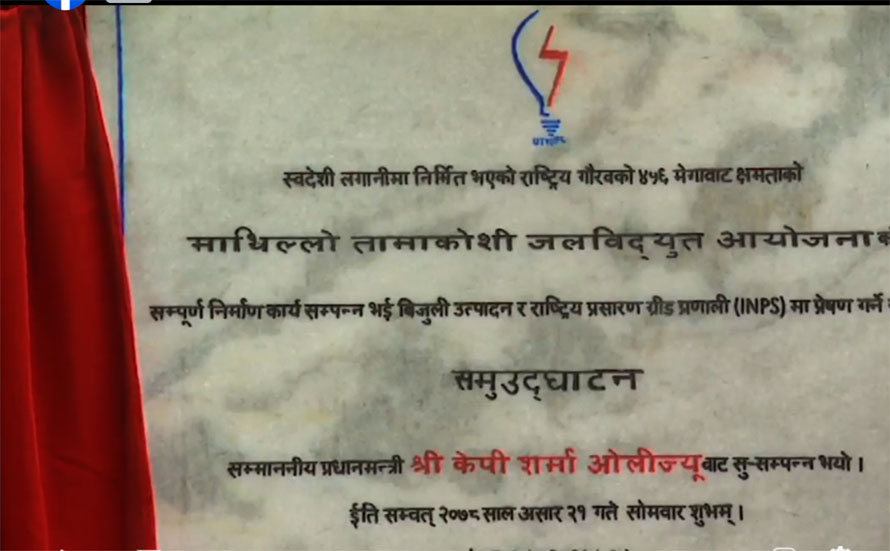 स्वदेशी लगानीमा निर्मित भएको राष्ट्रिय गौरवको ४५६ मेगावाट क्षमताको
माथिल्लो तामाकोशी जलविद्युत आयोजनाक
सम्पूर्ण निर्माण कार्य सम्पन्न भई बिजुली उत्पादन र राष्ट्रिय प्रसारण ग्रीड प्रणाली (INPS) मा प्रेषण गर्ने
समुउद्घाटन
सम्माननीय प्रधानमन्त्री श्री केपी शर्मा ओलीज्यूबाट सु-सम्पन्न भयो ।
ईति सम्वत् २०७८ साल असार २१ गते सोमवार शुभम् ।